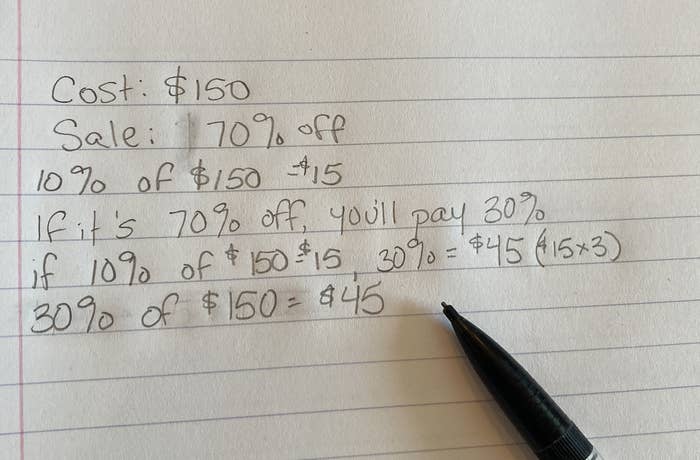 Cost: $150
Sale: 70% off
10% of $150 =$15
If it's 70% off, you'll pay 30%
if 10% of $150=$15, 30% = $45 ($15x3)
30% of $150 = $45